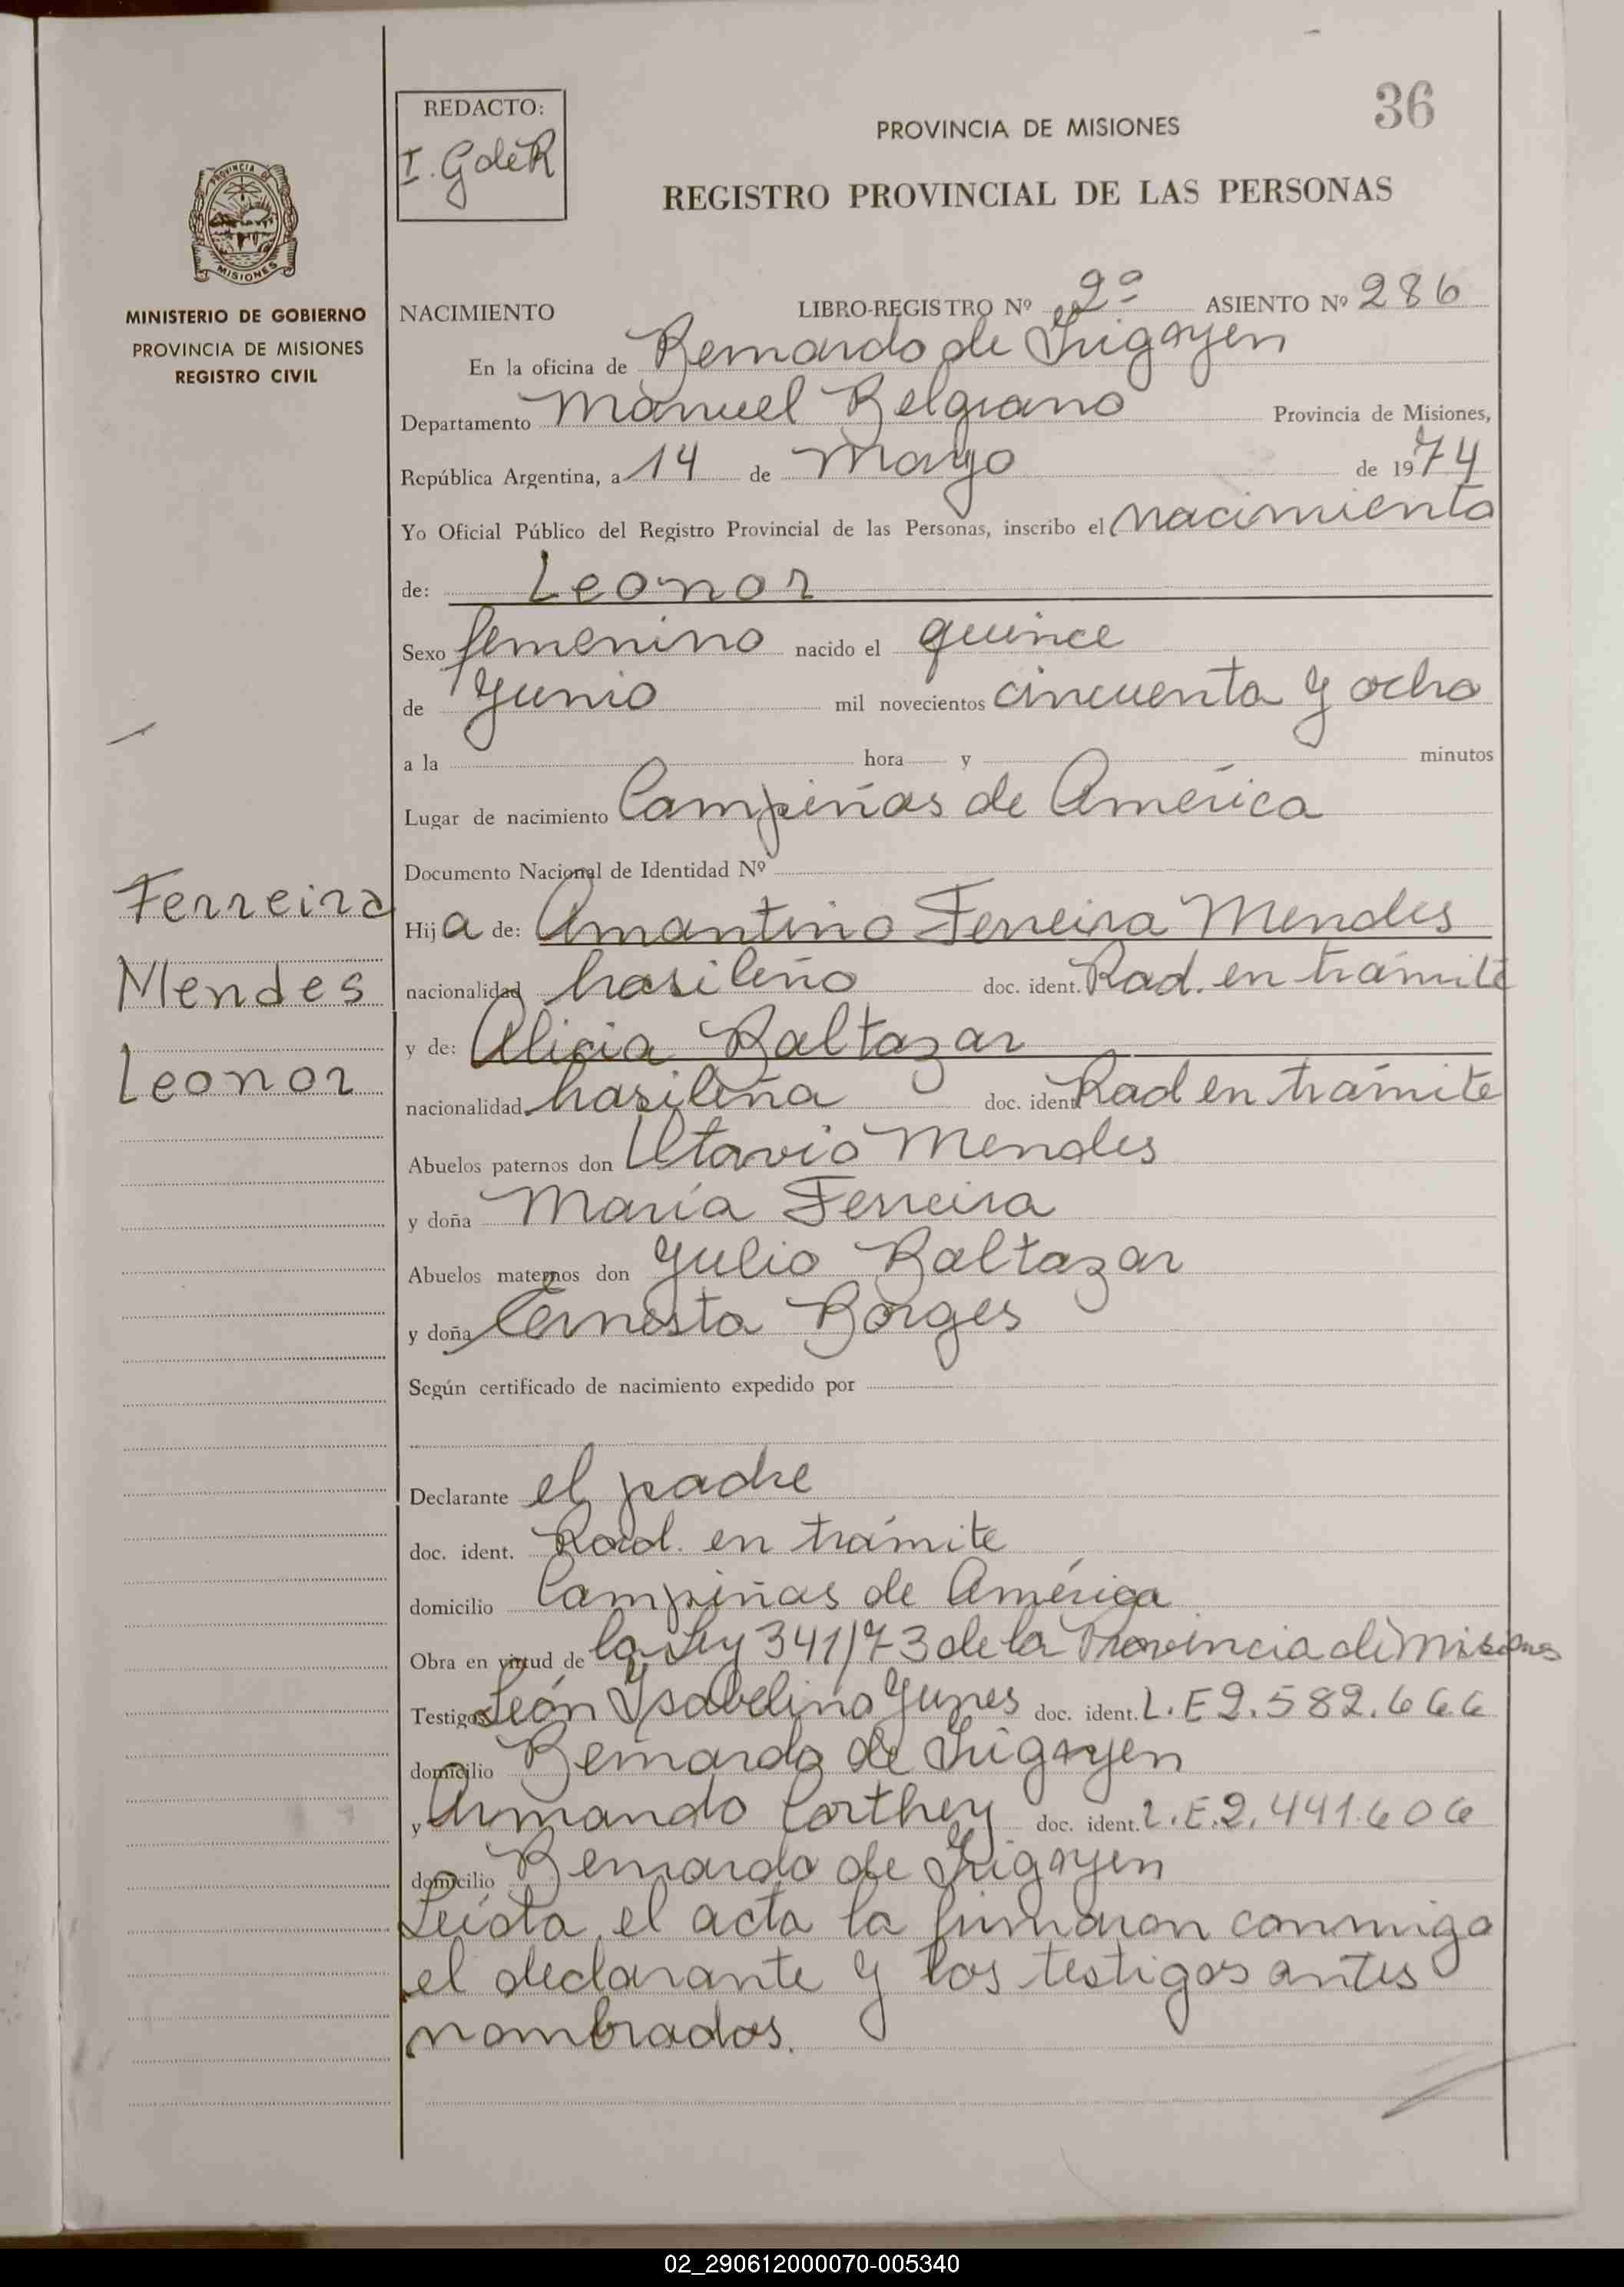 36
REDACTO:
I. GdeR
PROVINCIA DE MISIONES
REGISTRO PROVINCIAL DE LAS PERSONAS
PROVINCIA DE
MISIONES
MINISTERIO DE GOBIERNO
PROVINCIA DE MISIONES
REGISTRO CIVIL
NACIMIENTO LIBRO-REGISTRO Nº 2º ASIENTO Nº 286
En la oficina de Bernardo de Irigoyen
Departamento Manuel Belgrano Provincia de Misiones,
República Argentina, a 14 de Mayo de 1974
Yo Oficial Público del Registro Provincial de las Personas, inscribo el nacimiento
de: Leonor
Sexo femenino nacido el quince
de Junio mil novecientos cincuenta y ocho
a la hora y minutos
Lugar de nacimiento Campiñas de América
Documento Nacional de Identidad Nº
Ferreira
Mendes
Leonor
Hija de: Amantino Ferreira Mendes
nacionalidad brasileño doc. ident. Rad. en trámite
y de: Alicia Baltazar
nacionalidad brasileña doc. ident. Rad en trámite
Abuelos paternos don Otavio Mendes
y doña María Ferreira
Abuelos maternos don Julio Baltazar
y doña Ernesta Borges
Según certificado de nacimiento expedido por
Declarante el padre
doc. ident. Rad. en trámite
domicilio Campiñas de América
Obra en virtud de la Ley 341/73 de la Provincia de Misiones
Testigos León Ysabelino Yunes doc. ident. L.E 2.582.666
domicilio Bernardo de Irigoyen
y Armando Corthey doc. ident. L.E.2.441.606
domicilio Bernardo de Irigoyen
Leída el acta la firmaron conmigo
el declarante y los testigos antes
nombrados.
02_290612000070-005340